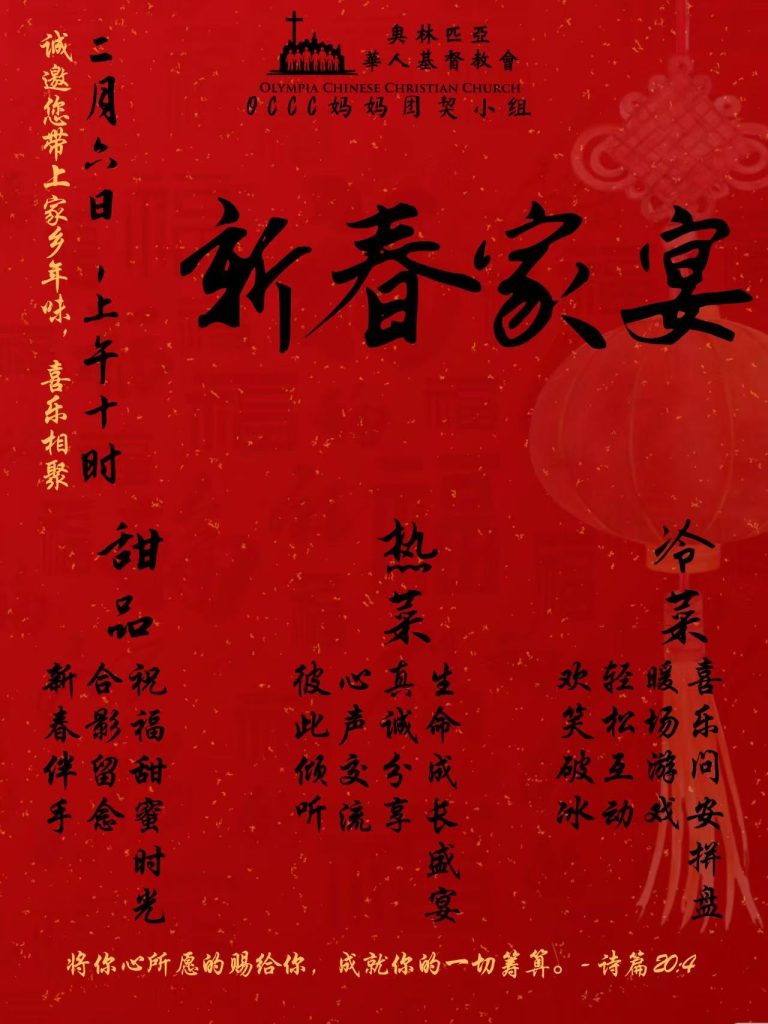 奧林匹亞
華人基督教會
OLYMPIA CHINESE CHRISTIAN CHURCH
OCCC妈妈团契小组
新春家宴
二月六日，上午十时
诚邀您带上家乡年味，喜乐相聚
冷菜
喜乐问安拼盘
暖场游戏
轻松互动
欢笑破冰
热菜
生命成长盛宴
真诚分享
心声交流
彼此倾听
甜品
祝福甜蜜时光
合影留念
新春伴手
将你心所愿的赐给你，成就你的一切筹算。- 诗篇 20:4